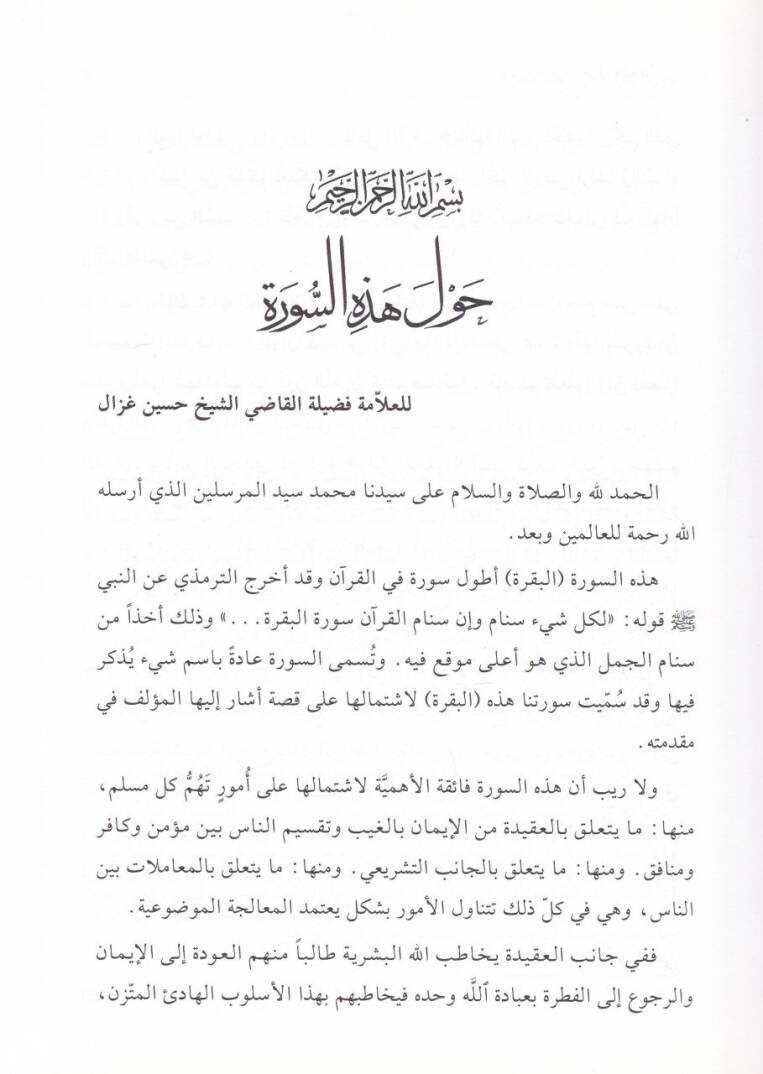 بِسْمِ اللَّهِ الرَّحْمَنِ الرَّحِيمِ
حَوْلَ هَذِهِ السُّورَةِ
للعلاّمة فضيلة القاضي الشيخ حسين غزال
الحمد لله والصلاة والسلام على سيدنا محمد سيد المرسلين الذي أرسله
الله رحمة للعالمين وبعد.
هذه السورة (البقرة) أطول سورة في القرآن وقد أخرج الترمذي عن النبي
ﷺ قوله: «لكل شيء سنام وإن سنام القرآن سورة البقرة...» وذلك أخذاً من
سنام الجمل الذي هو أعلى موقع فيه. وتُسمى السورة عادةً باسم شيء يُذكر
فيها وقد سُمّيت سورتنا هذه (البقرة) لاشتمالها على قصة أشار إليها المؤلف في
مقدمته.
ولا ريب أن هذه السورة فائقة الأهميَّة لاشتمالها على أُمورٍ تَهُمُّ كل مسلم،
منها: ما يتعلق بالعقيدة من الإيمان بالغيب وتقسيم الناس بين مؤمن وكافر
ومنافق. ومنها: ما يتعلق بالجانب التشريعي. ومنها: ما يتعلق بالمعاملات بين
الناس، وهي في كلّ ذلك تتناول الأمور بشكل يعتمد المعالجة الموضوعية.
ففي جانب العقيدة يخاطب الله البشرية طالباً منهم العودة إلى الإيمان
والرجوع إلى الفطرة بعبادة ٱللَّه وحده فيخاطبهم بهذا الأسلوب الهادئ المتّزن،